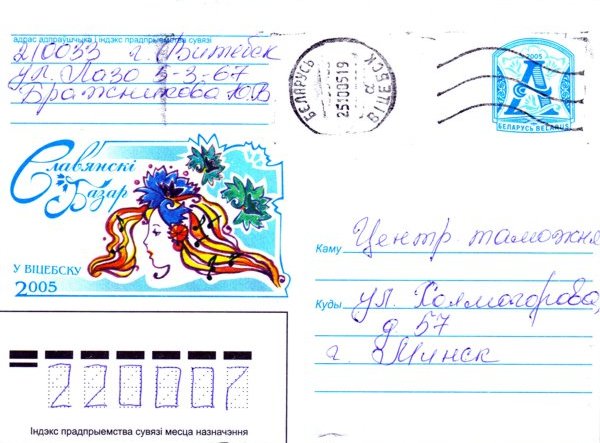 адрас адпраўшчыка і індэкс прадпрыемства сувязі
210033 г. Витебск
ул. Лазо 5-3-67
Бражникова Ю.В.
БЕЛАРУСЬ
25100519
ВІЦЕБСК
2005
А
БЕЛАРУСЬ BELARUS
Славянскі
Базар
У ВІЦЕБСКУ
2005
Каму Центр таможня
Куды ул. Холмогорова,
д. 57
г. Минск
220007
Індэкс прадпрыемства сувязі месца назначэння